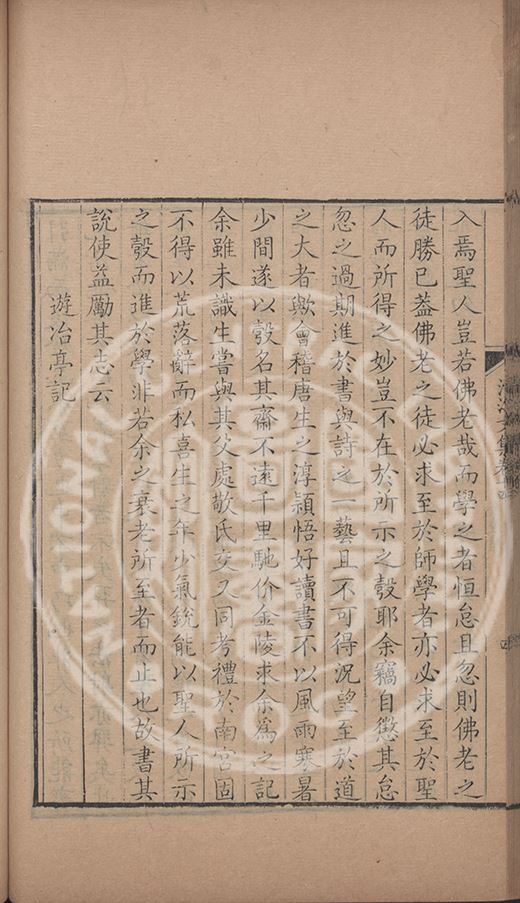 入焉聖人豈若佛老哉而學之者恒怠且忽則佛老之
徒勝已蓋佛老之徒必求至於師學者亦必求至於聖
人而所得之妙豈不在於所示之彀耶余竊自懲其怠
忽之過期進於書與詩之一藝且不可得況望至於道
之大者歟會稽唐生之淳穎悟好讀書不以風雨寒暑
少間遂以彀名其齋不遠千里馳价金陵求余為之記
余雖未識生嘗與其父處敬氏交又同考禮於南宮固
不得以荒落辭而私喜生之年少氣銳能以聖人所示
之彀而進於學非若余之衰老所至者而止也故書其
說使益勵其志云
遊冶亭記